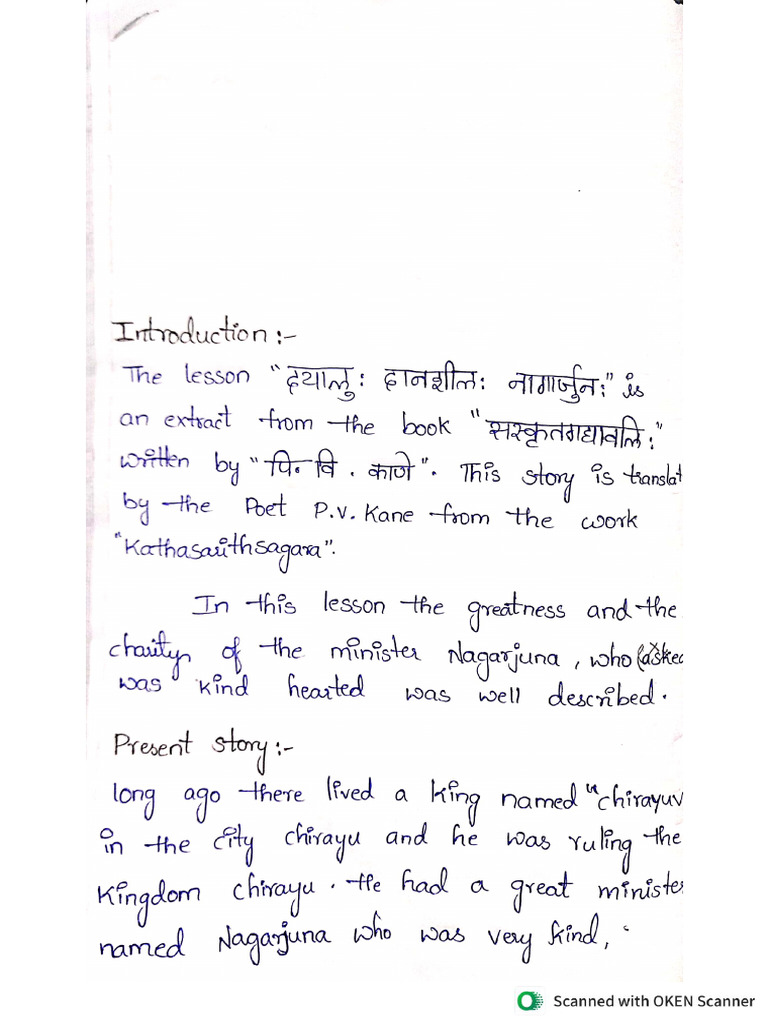 Introduction :-
The lesson "दयालुः दानशीलः नागार्जुनः" is
an extract from the book "सस्कृतगद्यावलिः"
written by "पि. वि. काणे". This story is translat
by the Poet P.V. Kane from the work
"Kathasarithsagara".
In this lesson the greatness and the
charity of the minister Nagarjuna, who (asked
was kind hearted was well described.
Present story :-
long ago there lived a king named "chirayuv
in the city chirayu and he was ruling the
Kingdom chirayu. He had a great minister
named Nagarjuna who was very kind,
Scanned with OKEN Scanner